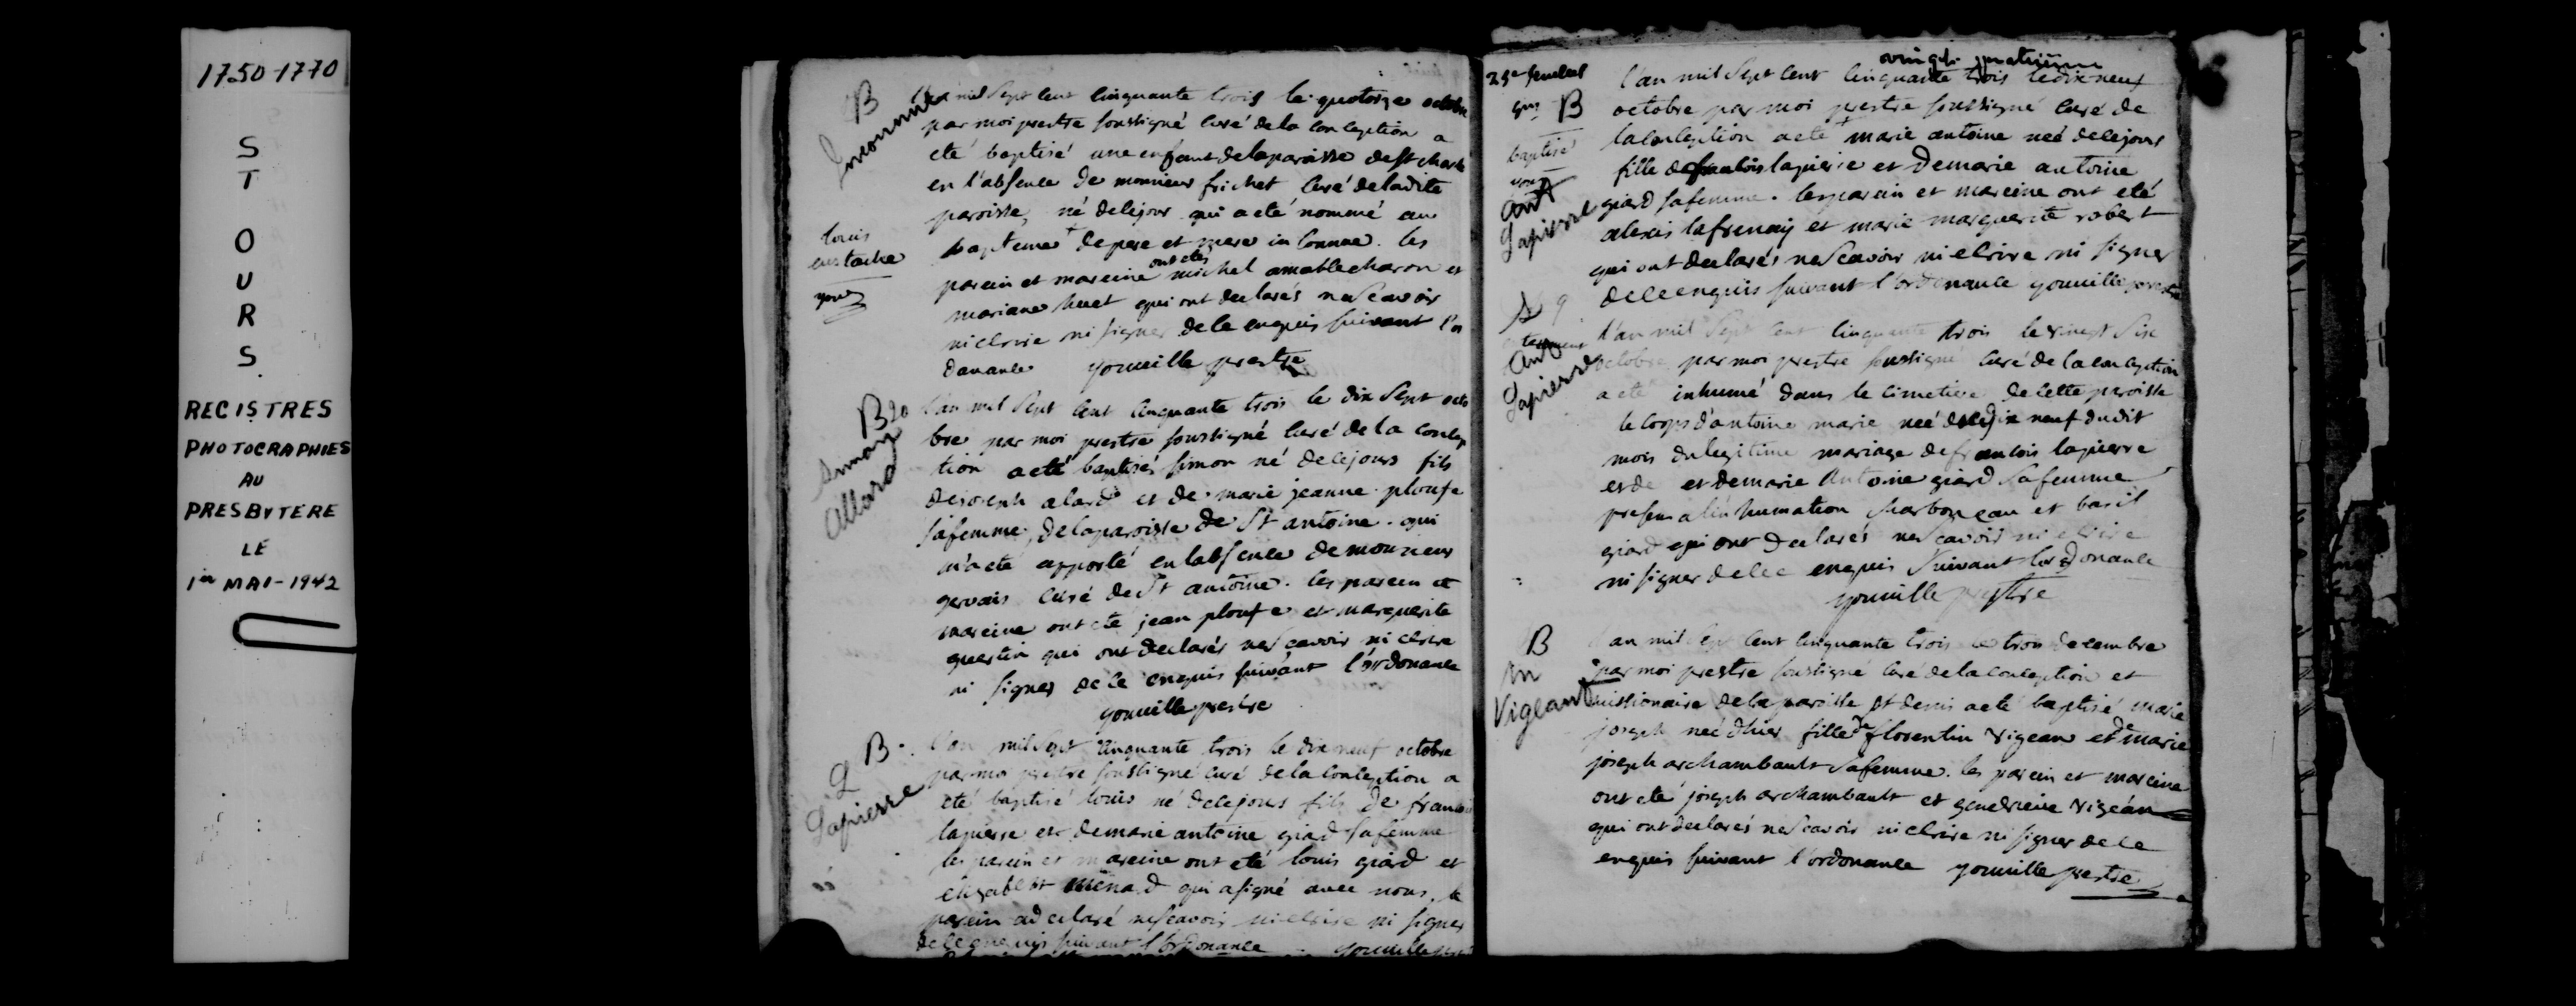 1750-1770
S
T
O
U
R
S
REGISTRES
PHOTOGRAPHIES
AU
PRESBYTERE
LE
1er MAI-1942
B
Inconnu
L'an mil Sept Cent Cinquante trois le quatorze octobre
par moi prestre soussigné Curé de la Conception a
eté baptisé une enfant de la paroisse de St charle
en l'absence de monsieur frichet Curé de ladite
paroisse, né de ce jour qui a eté nommé au
louis
eustache
bapteme + de pere et mere inconnue. les
parein et mareine ont etés michel amable charon et
mariane huet qui ont declarés ne scavoir
ni ecrire ni signer de ce enquis suivant l'or
donance youville prestre
B 20
Simon
Allard
l'an mil Sept Cent Cinquante trois le dix Sept octo
bre par moi prestre soussigné Curé de la Concep
tion a eté baptisés simon né de ce jours fils
de joseph alard et de marie jeanne ploufe
sa femme, de la paroisse de St antoine. qui
m'a eté apporté en l'absence de monsieur
gervais Curé de St antoine. les parein et
mareine ont eté jean ploufe et marguerite
guertin qui ont declarés ne scavoir ni ecrire
ni signer de ce enquis suivant l'ordonance
youville prestre
B
L
Lapierre
l'an mil Sept Cinquante trois le dix neuf octobre
par moi prestre soussigné curé de la Conception a
eté baptisé louis né de ce jours fils de francois
lapierre et de marie antoine giard sa femme
les parein et mareine ont eté louis giard et
elizabeth ménard qui a signé avec nous, le
parein a declaré ne scavoir ni ecrire ni signer
de ce enquis suivant l'ordonance youville prestre
vingt quatrieme
B
baptisé
Ant
Lapierre
l'an mil Sept Cent Cinquante trois le dix neuf
octobre par moi prestre soussigné Curé de
la Conception a eté + marie antoine neé de ce jours
fille de francois lapierre et de marie antoine
giard sa femme. les parein et mareine ont eté
alexis lafrenay et marie marguerite robert
qui ont declarés ne scavoir ni ecrire ni signer
de ce enquis suivant l'ordonance youville prestre
S 9
Ant
Lapierre
l'an mil Sept Cent Cinquante trois le vingt Six
octobre par moi prestre soussigné Curé de la Conception
a eté inhumé dans le cimetiere de cette paroisse
le corps d'antoine marie neé le dix neuf dudit
mois du legitime mariage de francois lapierre
et de et de marie Antoine giard sa femme
presens a l'inhumation charboneau et basil
giard qui ont declarés ne scavoir ni ecrire
ni signer de ce enquis Suivant l'ordonance
youville prestre
B
M
Vigeant
l'an mil Sept Cent Cinquante trois le trois decembre
par moi prestre soussigné Curé de la Conception et
missionaire de la paroisse St denis a eté baptisé marie
joseph neé d'hier fille de florentin vigean et de marie
joseph archambault sa femme. les parein et mareine
ont eté joseph archambault et genevieve vigean
qui ont declarés ne scavoir ni ecrire ni signer de ce
enquis suivant l'ordonance youville prestre